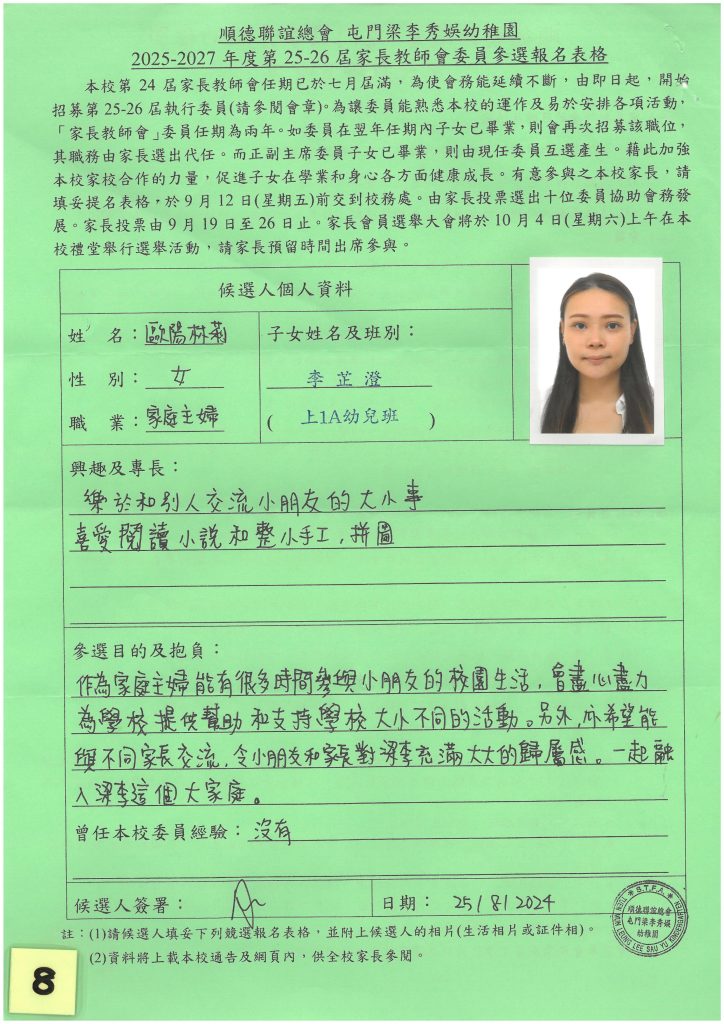 順德聯誼總會 屯門梁李秀娛幼稚園
2025-2027 年度第 25-26 屆家長教師會委員參選報名表格
本校第 24 屆家長教師會任期已於七月屆滿，為使會務能延續不斷，由即日起，開始
招募第 25-26 屆執行委員(請參閱會章)。為讓委員能熟悉本校的運作及易於安排各項活動，
「家長教師會」委員任期為兩年。如委員在翌年任期內子女已畢業，則會再次招募該職位，
其職務由家長選出代任。而正副主席委員子女已畢業，則由現任委員互選產生。藉此加強
本校家校合作的力量，促進子女在學業和身心各方面健康成長。有意參與之本校家長，請
填妥提名表格，於 9 月 12 日(星期五)前交到校務處。由家長投票選出十位委員協助會務發
展。家長投票由 9 月 19 日至 26 日止。家長會員選舉大會將於 10 月 4 日(星期六)上午在本
校禮堂舉行選舉活動，請家長預留時間出席參與。
候選人個人資料
姓 名：歐陽林莉 子女姓名及班別：
性 別：女 李芷澄
職 業：家庭主婦 ( 上1A幼兒班 )
興趣及專長：
樂於和別人交流小朋友的大小事
喜愛閱讀小說和整小手工，拼圖
參選目的及抱負：
作為家庭主婦能有很多時間參與小朋友的校園生活，會盡心盡力
為學校提供幫助和支持學校大小不同的活動。另外，亦希望能
與不同家長交流，令小朋友和家長對梁李充滿大大的歸屬感。一起融
入梁李這個大家庭。
曾任本校委員經驗：沒有
候選人簽署： 日期： 25/8/2024
註：(1)請候選人填妥下列競選報名表格，並附上候選人的相片(生活相片或証件相)。
(2)資料將上載本校通告及網頁內，供全校家長參閱。
S.T.F.A.
TUEN MUN LEUNG LEE SAU YU KINDERGARTEN
順德聯誼總會
屯門梁李秀娛
幼稚園
8